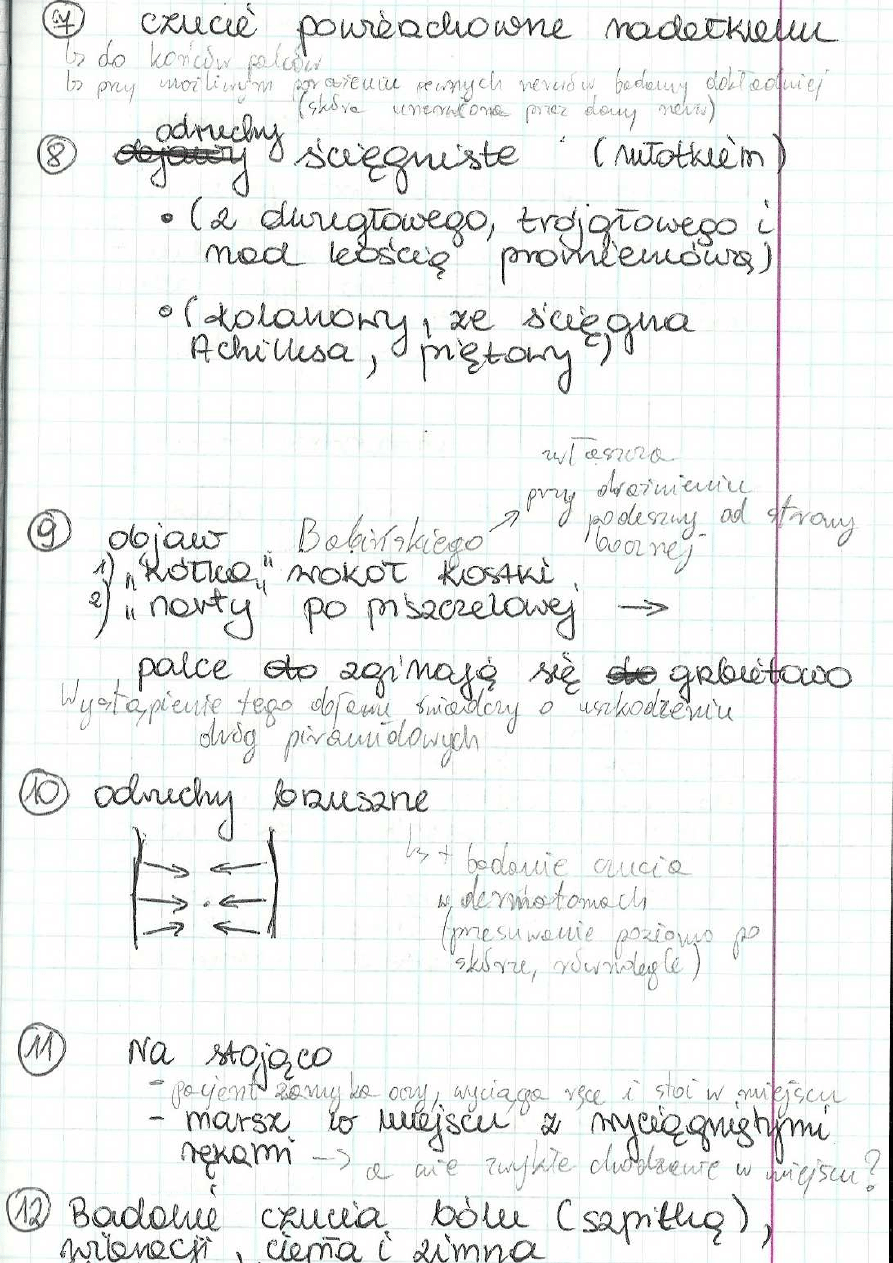 7 czucie powierzchowne nadetkiem
↳ do końców palców
↳ przy możliwym porażeniu pewnych nerwów badamy dokładniej
(skóra unerwiona przez dany nerw)
odruchy
8 objawy ścięgniste (młotkiem)
• (z dwugłowego, trójgłowego i
nad kością promieniową)
• (kolanowy, ze ścięgna
Achillesa, piętowy)
zwłaszcza
przy drażnieniu
podeszwy od strony
bocznej
9 objaw Babińskiego ↗
1) "kółko" wokół kostki
2) "narty" po piszczelowej →
palce do zginają się do grzbietowo
Wystąpienie tego objawu świadczy o uszkodzeniu
dróg piramidowych
10 odruchy brzuszne
↳ + badanie czucia
w dermatomach
(przesuwanie poziomo po
skórze, równolegle)
11 Na stojąco
- pacjent zamyka oczy, wyciąga ręce i stoi w miejscu
- marsz w miejscu z wyciągniętymi
rękami → a nie zwykłe chodzenie w miejscu?
12 Badanie czucia bólu (szpilką),
wibracji, ciepła i zimna